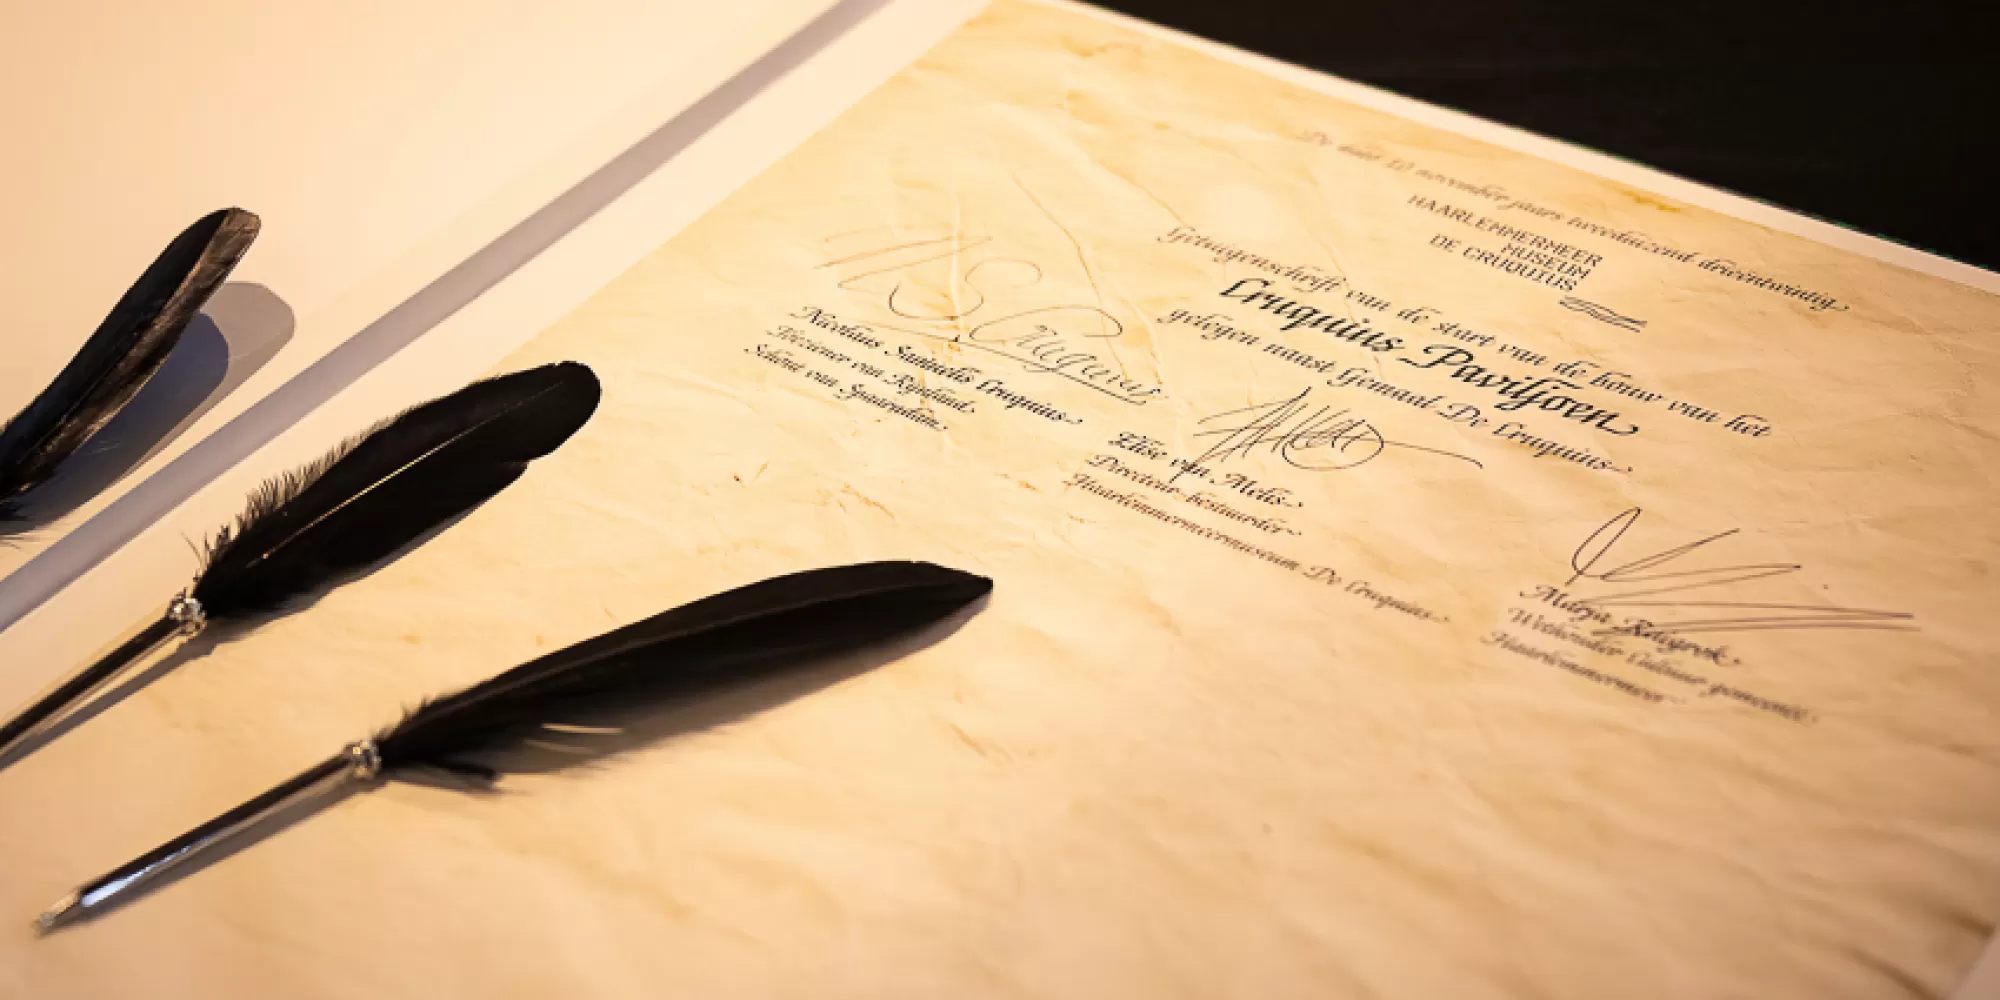 HAARLEMMERMEER
MUSEUM
DE CRUQUIUS
Getuigenschrift van de start van de bouw van het
Cruquius Paviljoen
gelegen naast Gemaal De Cruquius
november jaars tweeduizend drieëntwintig
NS Cruquius
Nicolaus Samuelis Cruquius
Opziener van Rijnland
Schout van Spaarndam
Elise van Melis
Directeur-bestuurder
Haarlemmermeermuseum De Cruquius
Marja
Wethouder Cultuur gemeente
Haarlemmermeer